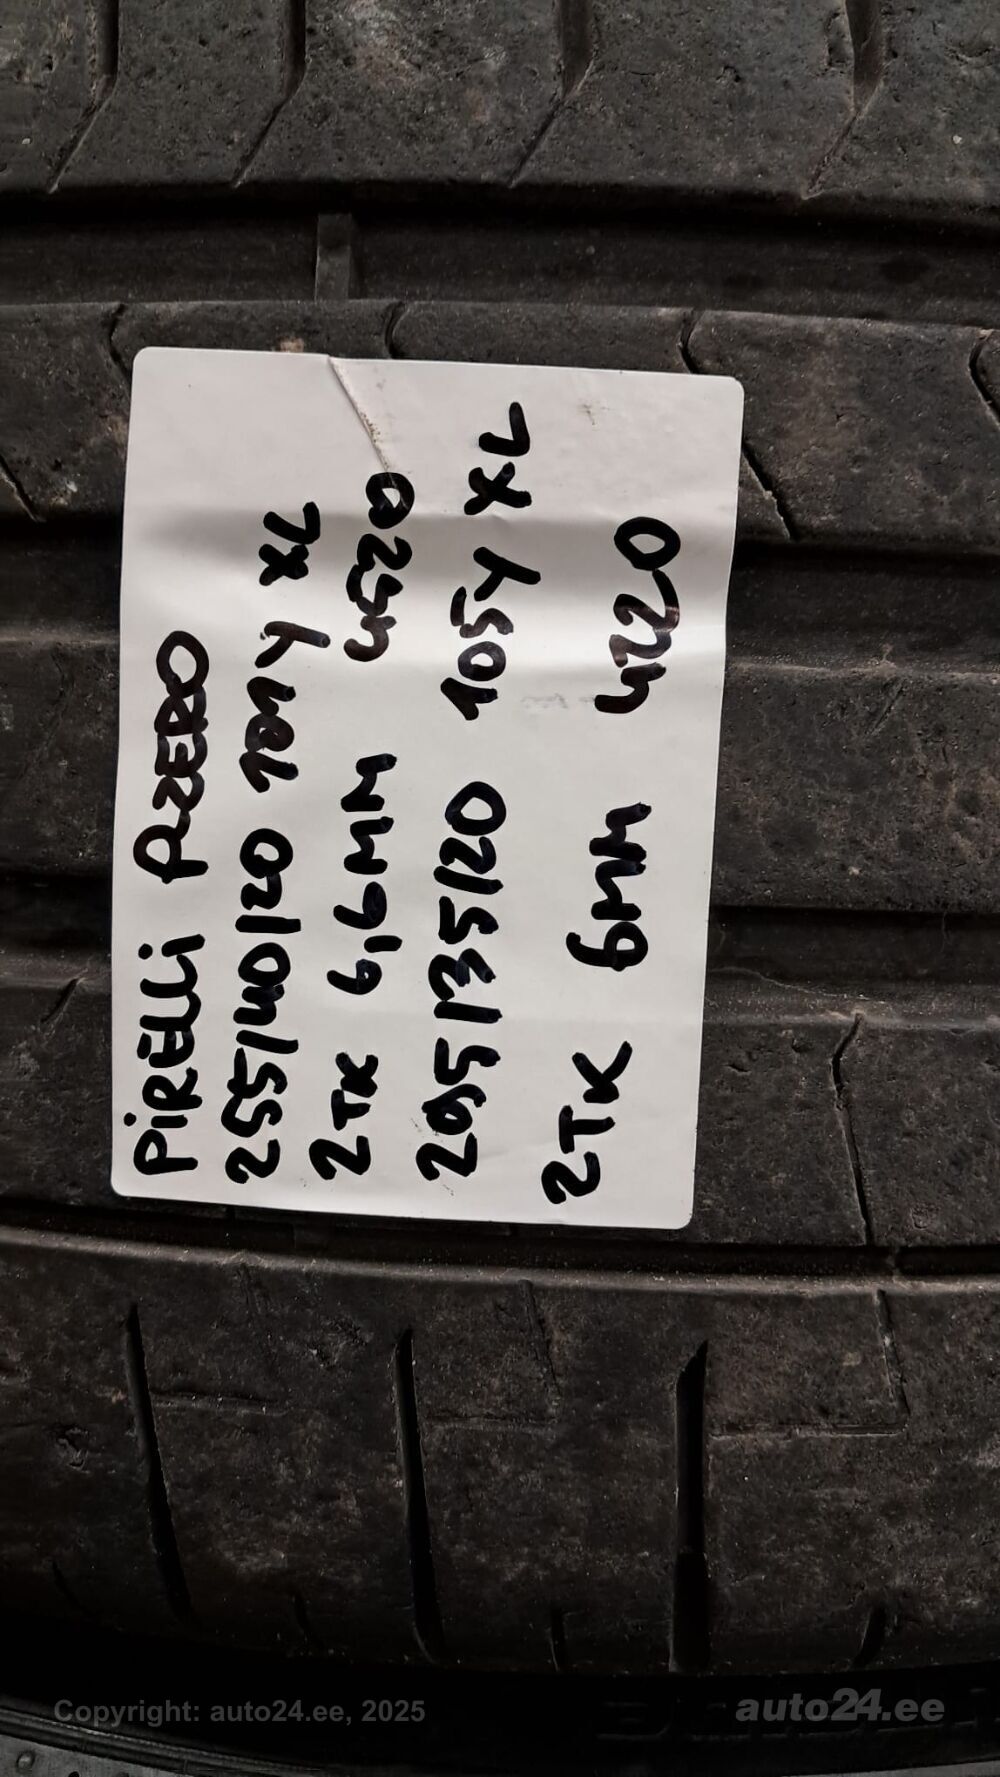 PIRELLI PZERO
255/40/20 101Y XL
2TK 6,6MM 4520
295/35/20 105Y XL
2TK 6MM 4220
Copyright: auto24.ee, 2025
auto24.ee